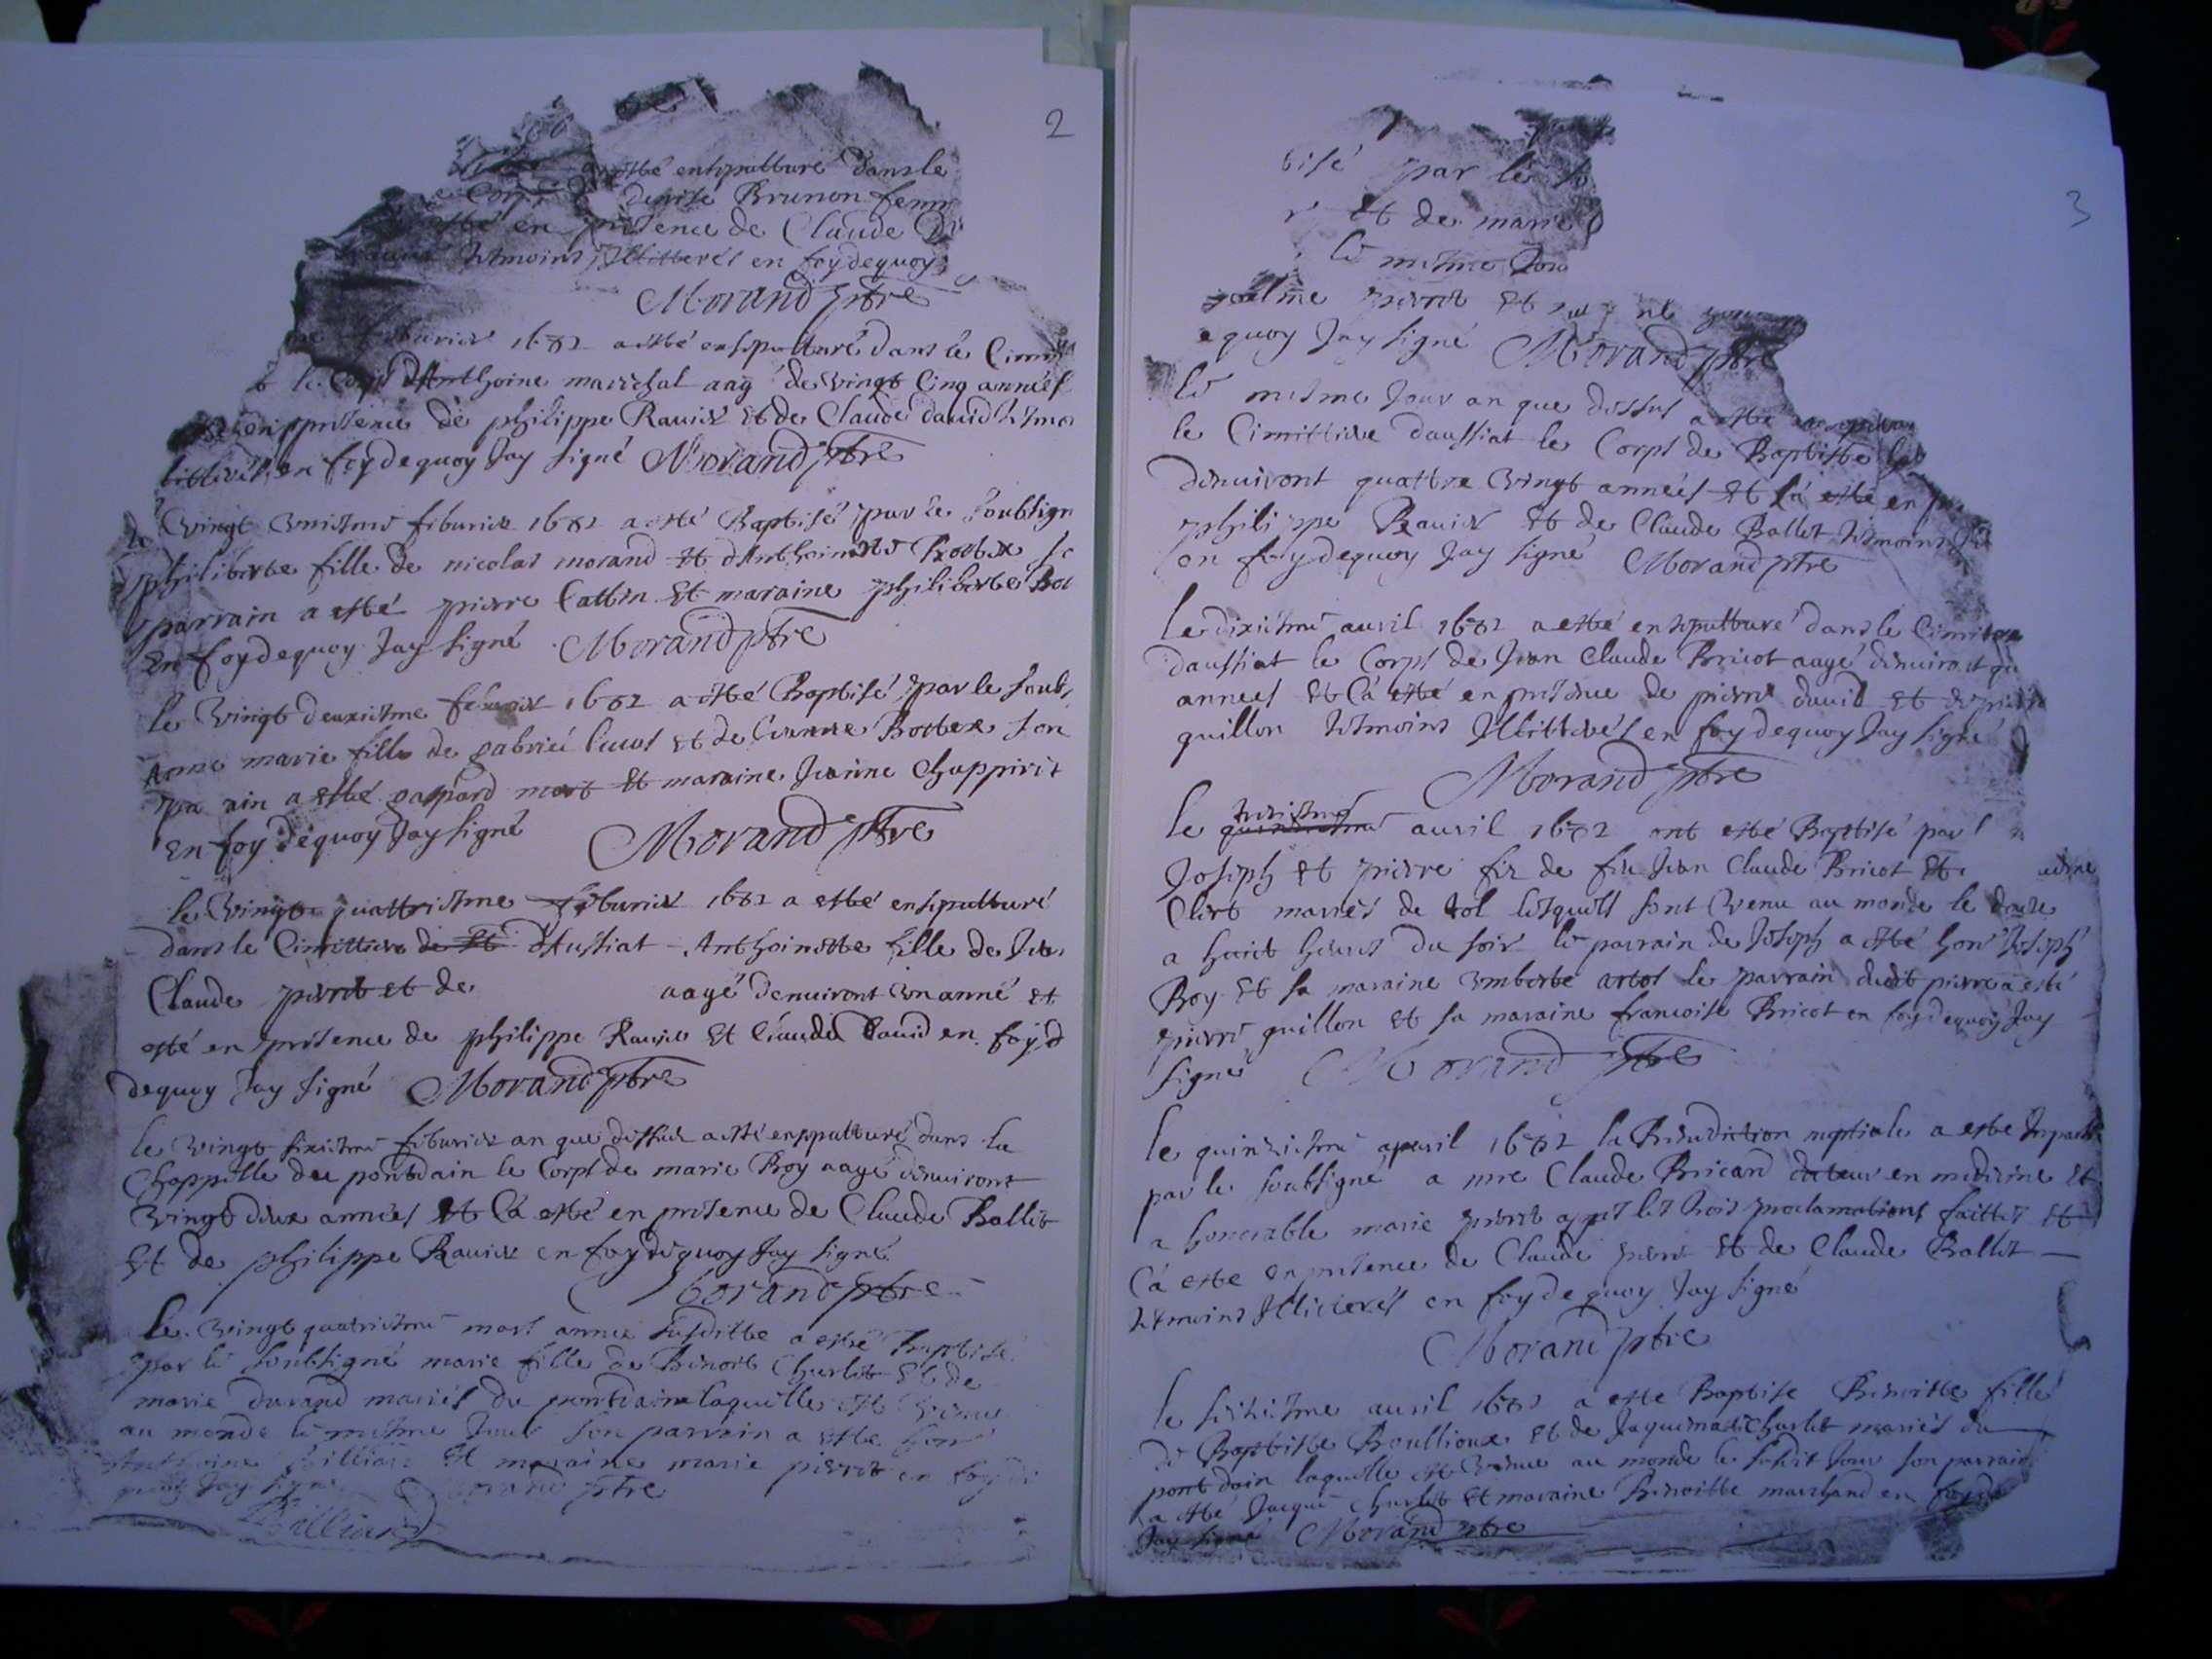 2
a esté ensepulturé dans le
Corps denise Brunon femm
esté en presence de Claude
tesmoins Illitterés en foy dequoy
Morand ptre
feburier 1682 a esté ensepulturé dans le Cimit
le Corps dAnthoine mareschal aagé de vingt Cinq années
en presence de philippe Rauier et de Claude dauid tesmo
litterés en foy dequoy Jay signé Morand ptre
le vingt uniesme feburier 1682 a esté Baptisé par le soubsign
philiberte fille de nicolas morand et dAnthoinette
parrain a esté pierre Cattin et maraine philiberte
En foy dequoy Jay signé Morand ptre
le vingt deuxiesme feburier 1682 a esté Baptisé par le soubs
Anne marie fille de gabriel et de son
pa ain a esté gaspard et maraine Jeanne Chappirit
En foy dequoy Jay signé Morand ptre
le vingt quattriesme feburier 1682 a esté ensepulturé
dans le Cimittiere de et dAussiat Anthoinette fille de
Claude perret et de aagé denuiront un anné et
esté en presence de philippe Rauier et Claude Dauid en foy d
dequoy Jay signé Morand ptre
le vingt sixiesme feburier an que dessus a esté enppulturé dans la
Chappelle du pontdain le Corps de marie Roy aagé denuiront
vingt deux années et Cà esté en presence de Claude Ballet
et de philippe Rauier en foy dequoy Jay signé
Morand ptre
le vingt quatriesme mars année susditte a esté baptisé
par le soubsigné marie fille de Benoit Charlet et de
marie durand mariés du pontdain laquelle est venue
au monde le mesme Jour son parrain a esté hon
Anthoine Billiard et maraine marie pierret en foy de
quoy Jay signé Morand ptre
Billiard
3
tisé par le so
et de marie
le mesme Jou
perret et
equoy Jay signé Morand ptre
le mesme Jour an que dessus a esté
le Cimittiere daussiat le Corps de Baptiste
denuiront quattre vingt années et Cà esté en
philippe Rauier et de Claude Ballet tesmoins
en foy dequoy Jay signé Morand ptre
le dixiesme auril 1682 a esté ensepulturé dans le Cimitiere
daussiat le Corps de Jean Claude Bricot aagé denuiront
années et Cà esté en presence de pierre dauid et de pierre
guillon tesmoins Illitterés en foy dequoy Jay signé
Morand ptre
treiziesme
le quinziesme auril 1682 ont esté Baptisé par l
Joseph et pierre fiz de feu Jean Claude Bricot et
Clert mariés de tol lesquels sont venu au monde le douze
a huict heures du soir le parrain de Joseph a esté hon Joseph
Roy et sa maraine umberte artot le parrain dudit pierre a esté
pierre guillon et sa maraine francoise Bricot en foy dequoy Jay
signé Morand ptre
le quinziesme apuril 1682 la Benediction nuptiale a esté Impartie
par le soubsigné a mre Claude Bricard docteur en medicine et
a honorable marie perret apres les trois proclamations faittes et
Cà esté en presence de Claude perret et de Claude Ballet
tesmoins Illiterés en foy dequoy Jay signé
Morand ptre
le seiziesme auril 1682 a esté Baptisé Benoitte fille
de Baptiste Boullioux et de Jaquema Charlet mariés du
pont dain laquelle est venue au monde le susdit Jour son parrain
a esté Jacque Charlet et maraine Benoitte marchand en foy de
Jay signé Morand ptre